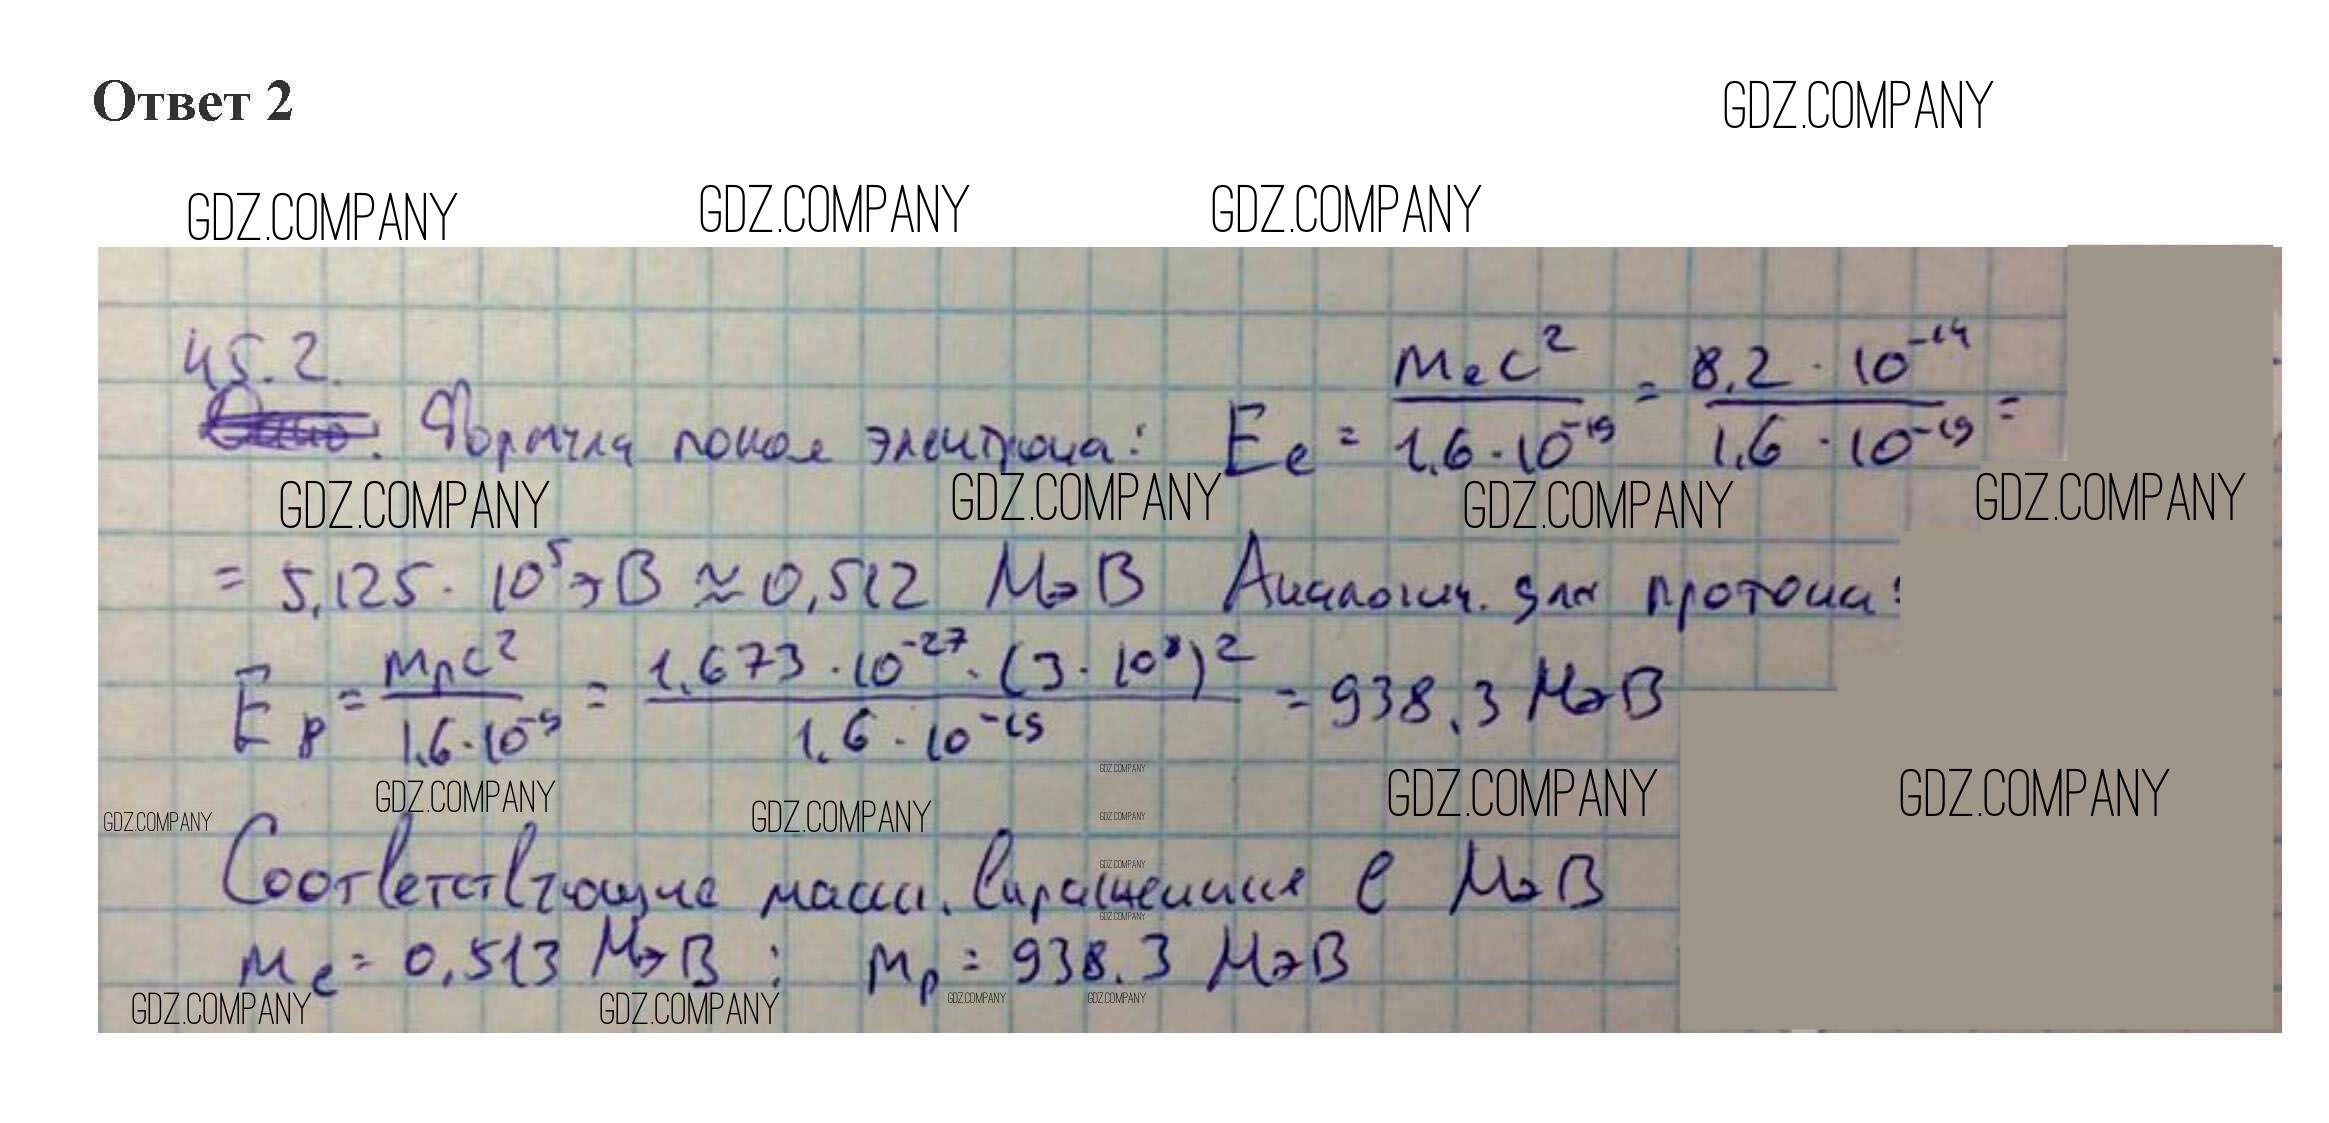 Ответ 2
GDZ.COMPANY
GDZ.COMPANY GDZ.COMPANY GDZ.COMPANY
45.2.
Формула покоя электрона: Eₑ = mₑc²/1,6·10⁻¹⁹ = 8,2·10⁻¹⁴/1,6·10⁻¹⁹ =
GDZ.COMPANY GDZ.COMPANY GDZ.COMPANY GDZ.COMPANY
= 5,125·10⁵ эВ ≈ 0,512 МэВ Аналогич. для протона:
E_p = m_pc²/1,6·10⁻⁹ = 1,673·10⁻²⁷·(3·10⁸)²/1,6·10⁻¹⁹ = 938,3 МэВ
GDZ.COMPANY
GDZ.COMPANY GDZ.COMPANY GDZ.COMPANY GDZ.COMPANY
GDZ.COMPANY GDZ.COMPANY
GDZ.COMPANY
Соответствующие массы, выраженные в МэВ
GDZ.COMPANY
mₑ = 0,513 МэВ; m_p = 938,3 МэВ
GDZ.COMPANY GDZ.COMPANY GDZ.COMPANY GDZ.COMPANY